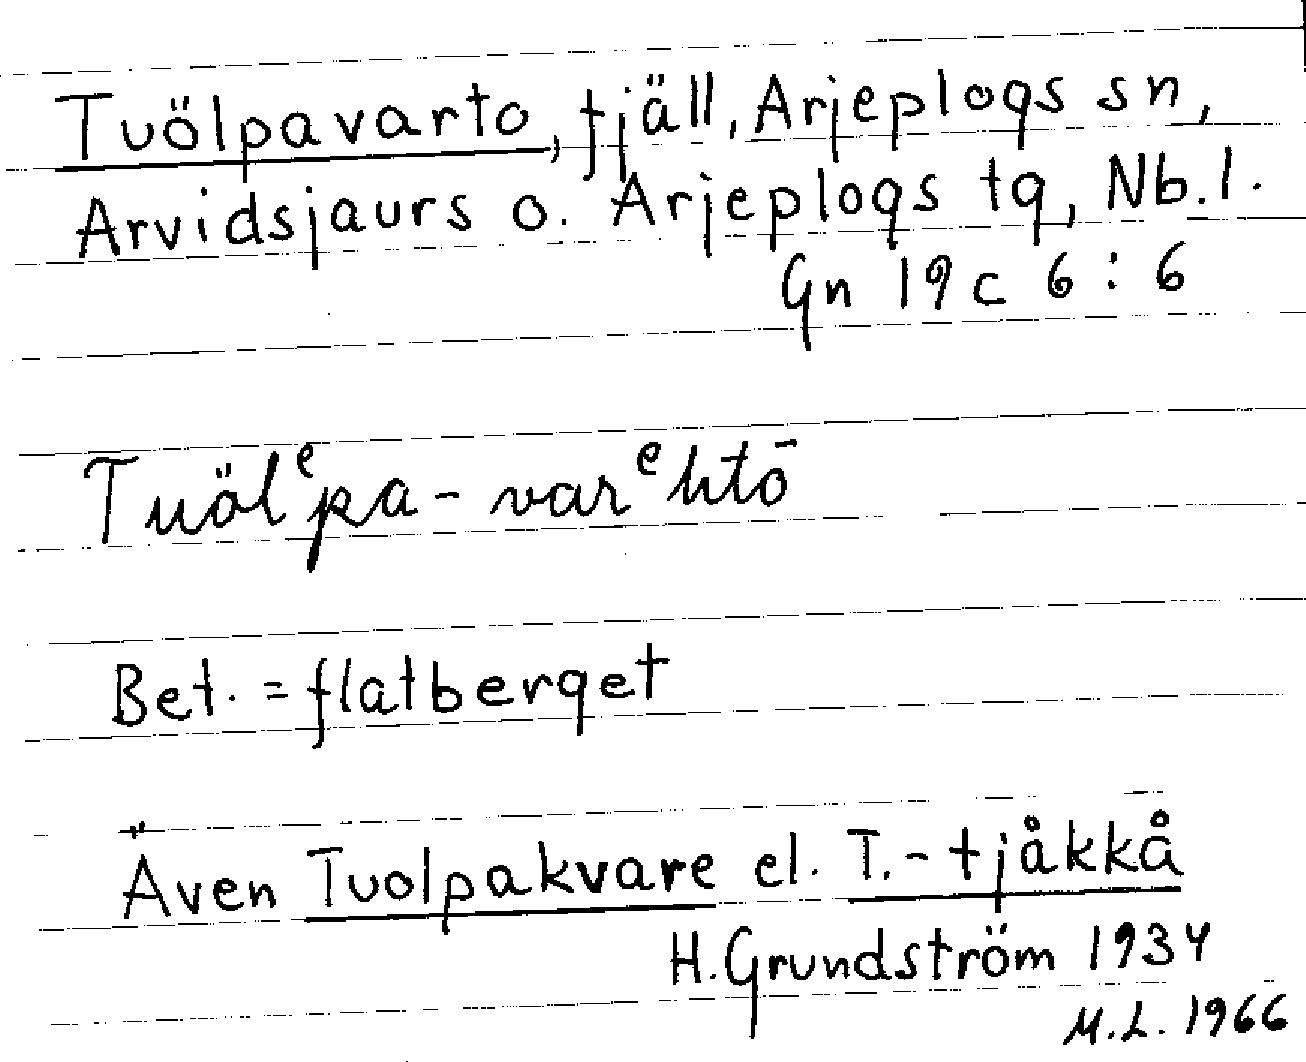 Tuölpavarto, fjäll, Arjeplogs sn,
Arvidsjaurs o. Arjeplogs tg, Nb.l.
Gn 19 c 6 : 6
Tuölᵉpa-varᵉhtō
Bet. = flatberget
Även Tuolpakvare el. T.-tjåkkå
H. Grundström 1934
M.L. 1966